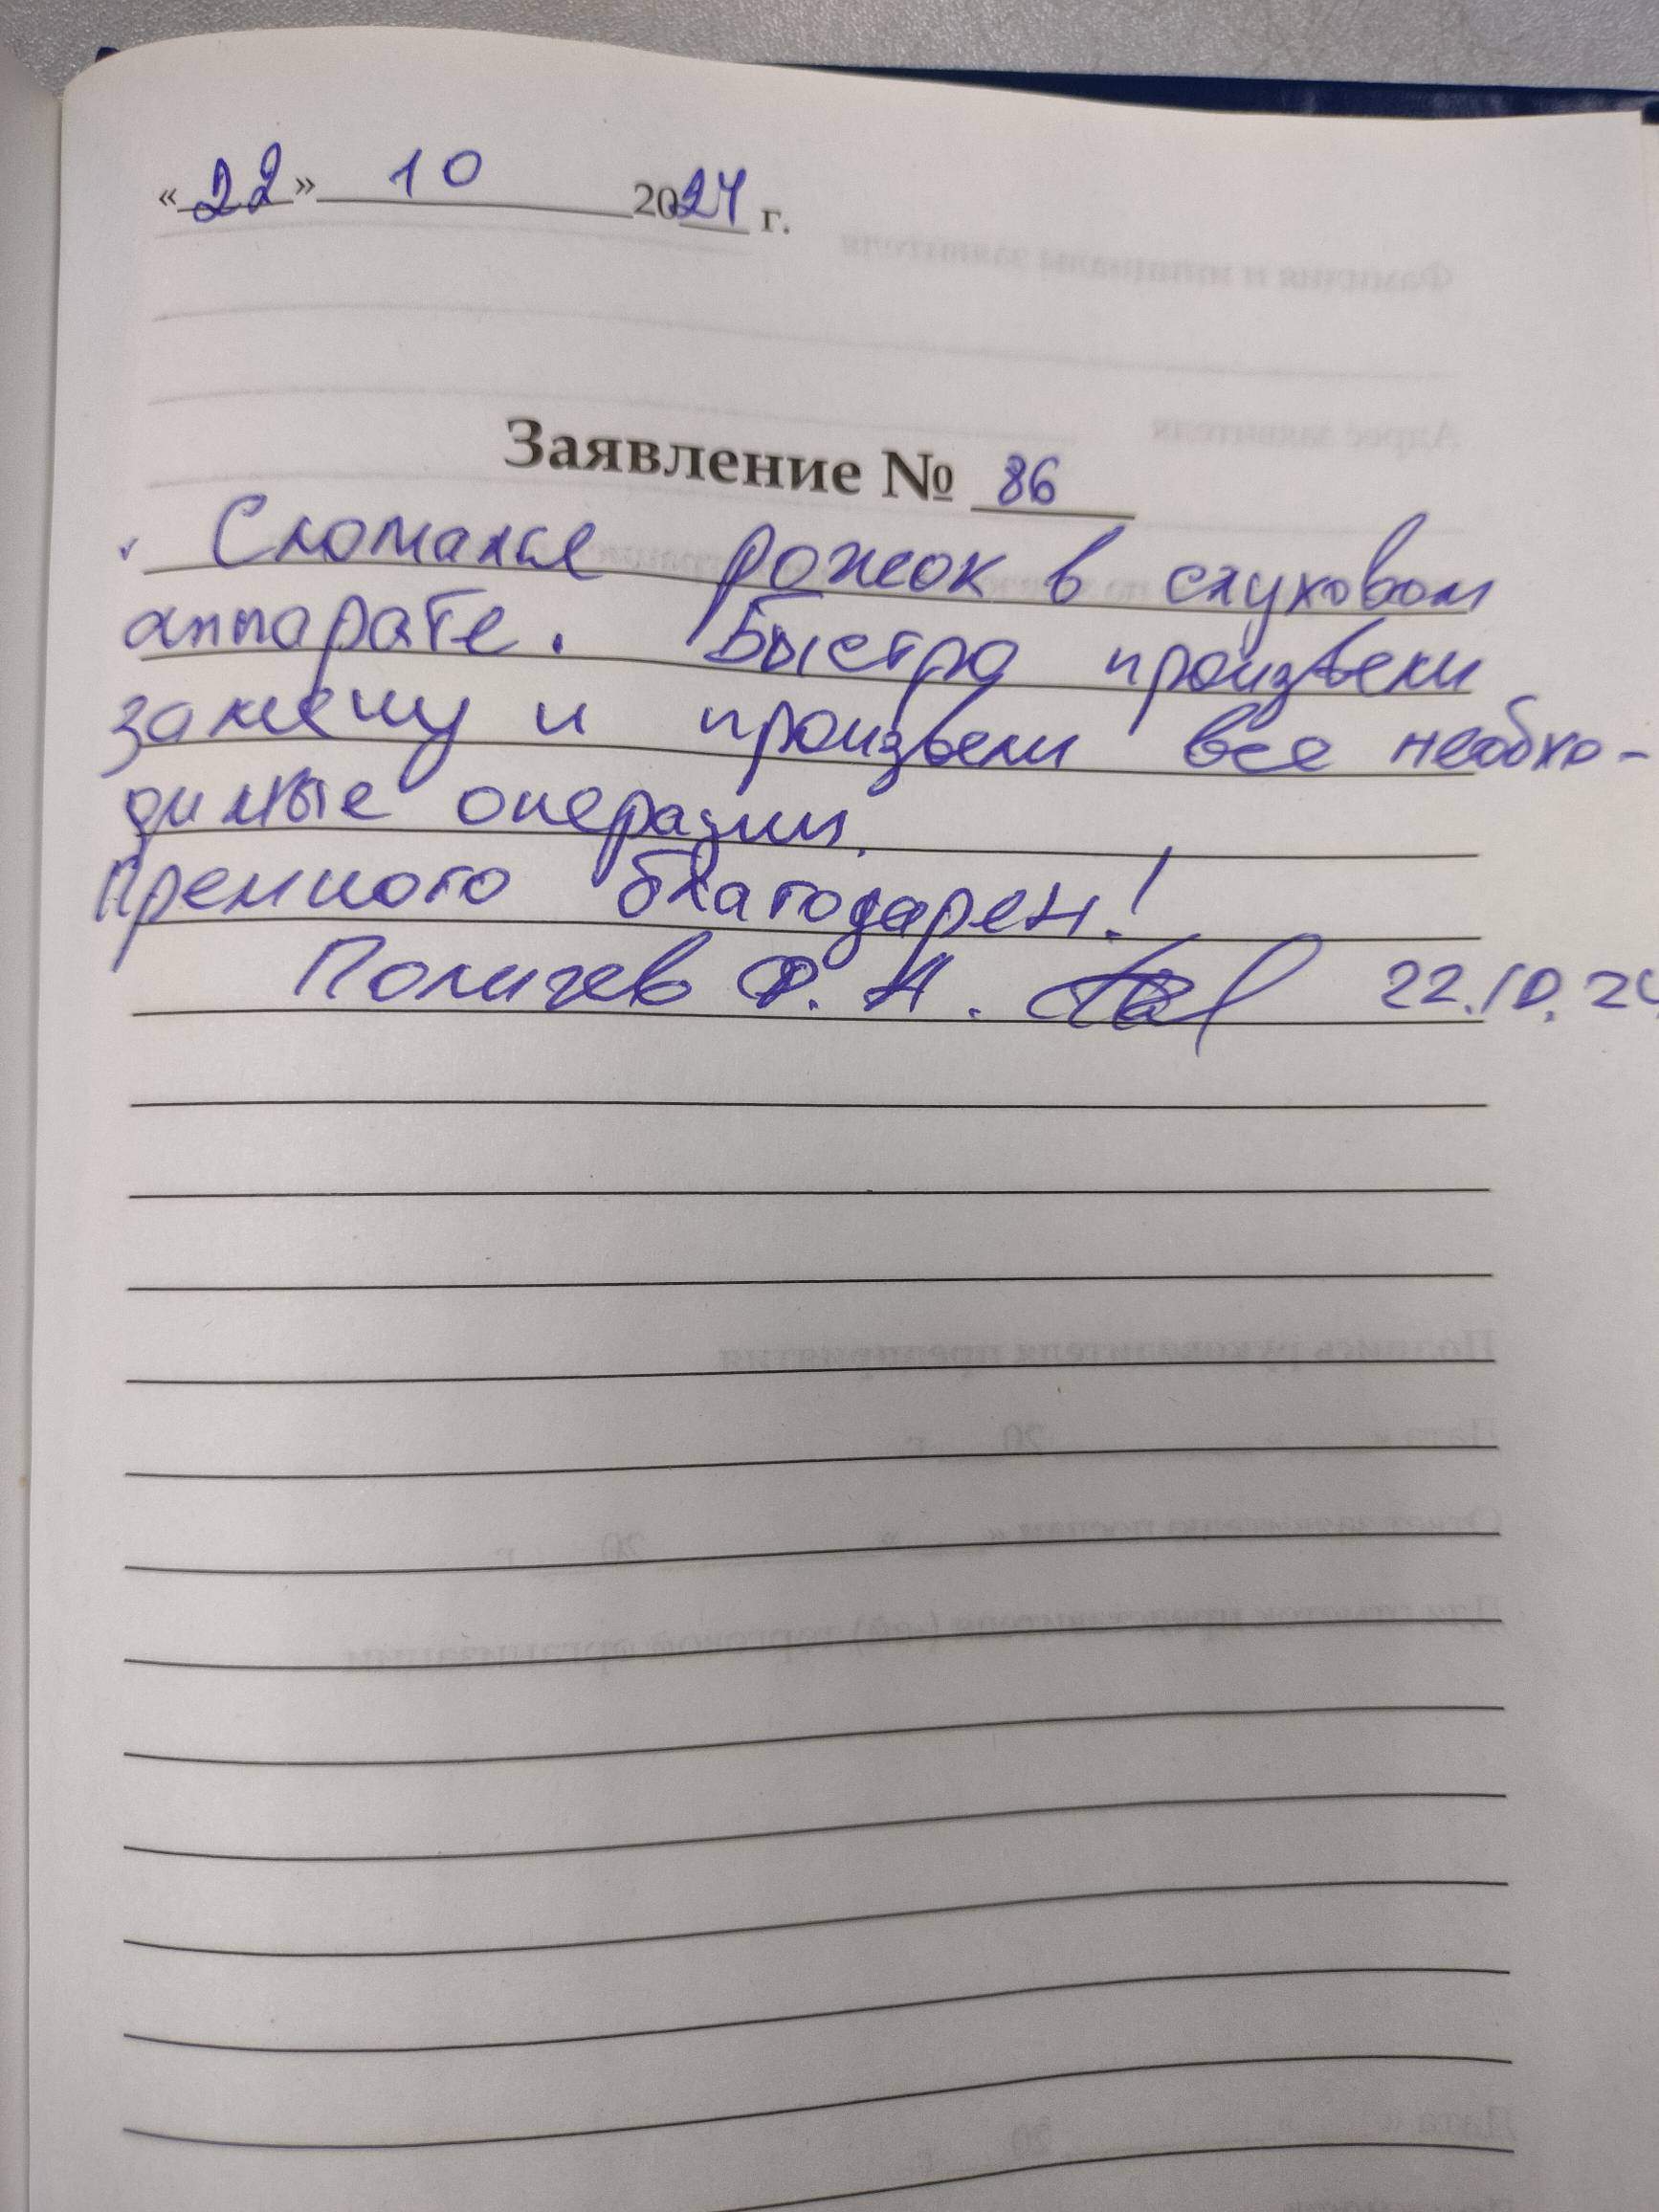 «22» 10 2024 г.
Заявление № 86
Сломался рожок в слуховом
аппарате. Быстро произвели
замену и произвели все необхо-
димые операции.
Премного благодарен!
Полигев Ф. А. 22.10.24